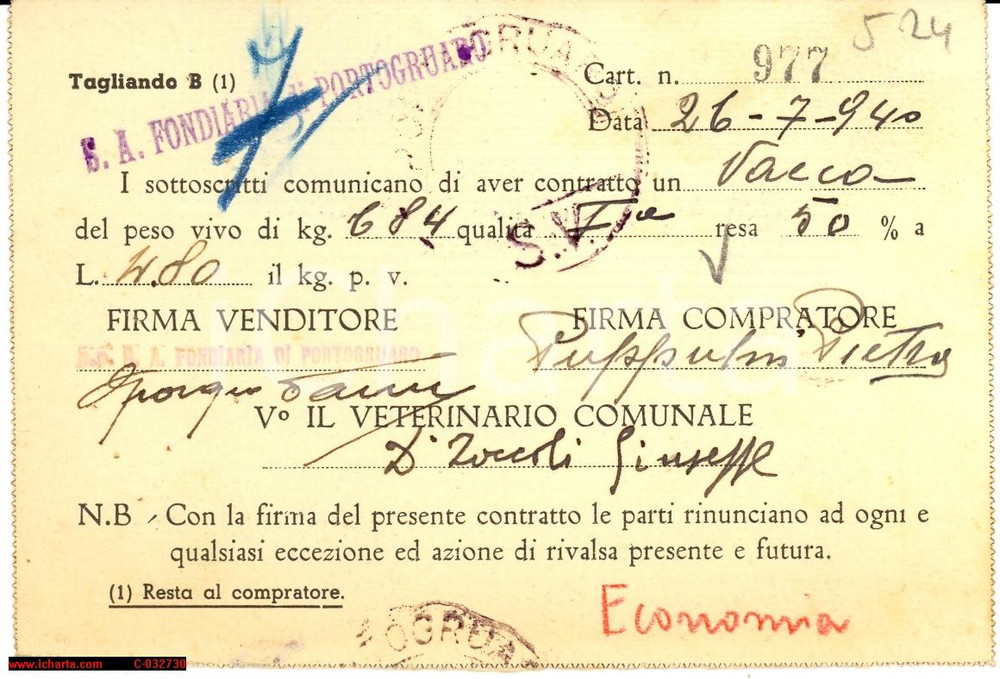 524
Tagliando B (1)
S. A. FONDIARIA di PORTOGRUARO
OGRUA
Cart. n. 977
Data 26-7-940
I sottoscritti comunicano di aver contratto un Vacca
del peso vivo di kg. 684 qualità Iª resa 50 % a
S.V.
L. 4.80 il kg. p. v.
FIRMA VENDITORE FIRMA COMPRATORE
S. A. FONDIARIA DI PORTOGRUARO
Giorgio Pietro
V° IL VETERINARIO COMUNALE
Dr Zoccoli Giuseppe
N.B - Con la firma del presente contratto le parti rinunciano ad ogni e
qualsiasi eccezione ed azione di rivalsa presente e futura.
(1) Resta al compratore.
Economia
OGRUA
icharta
www.icharta.com C-032730